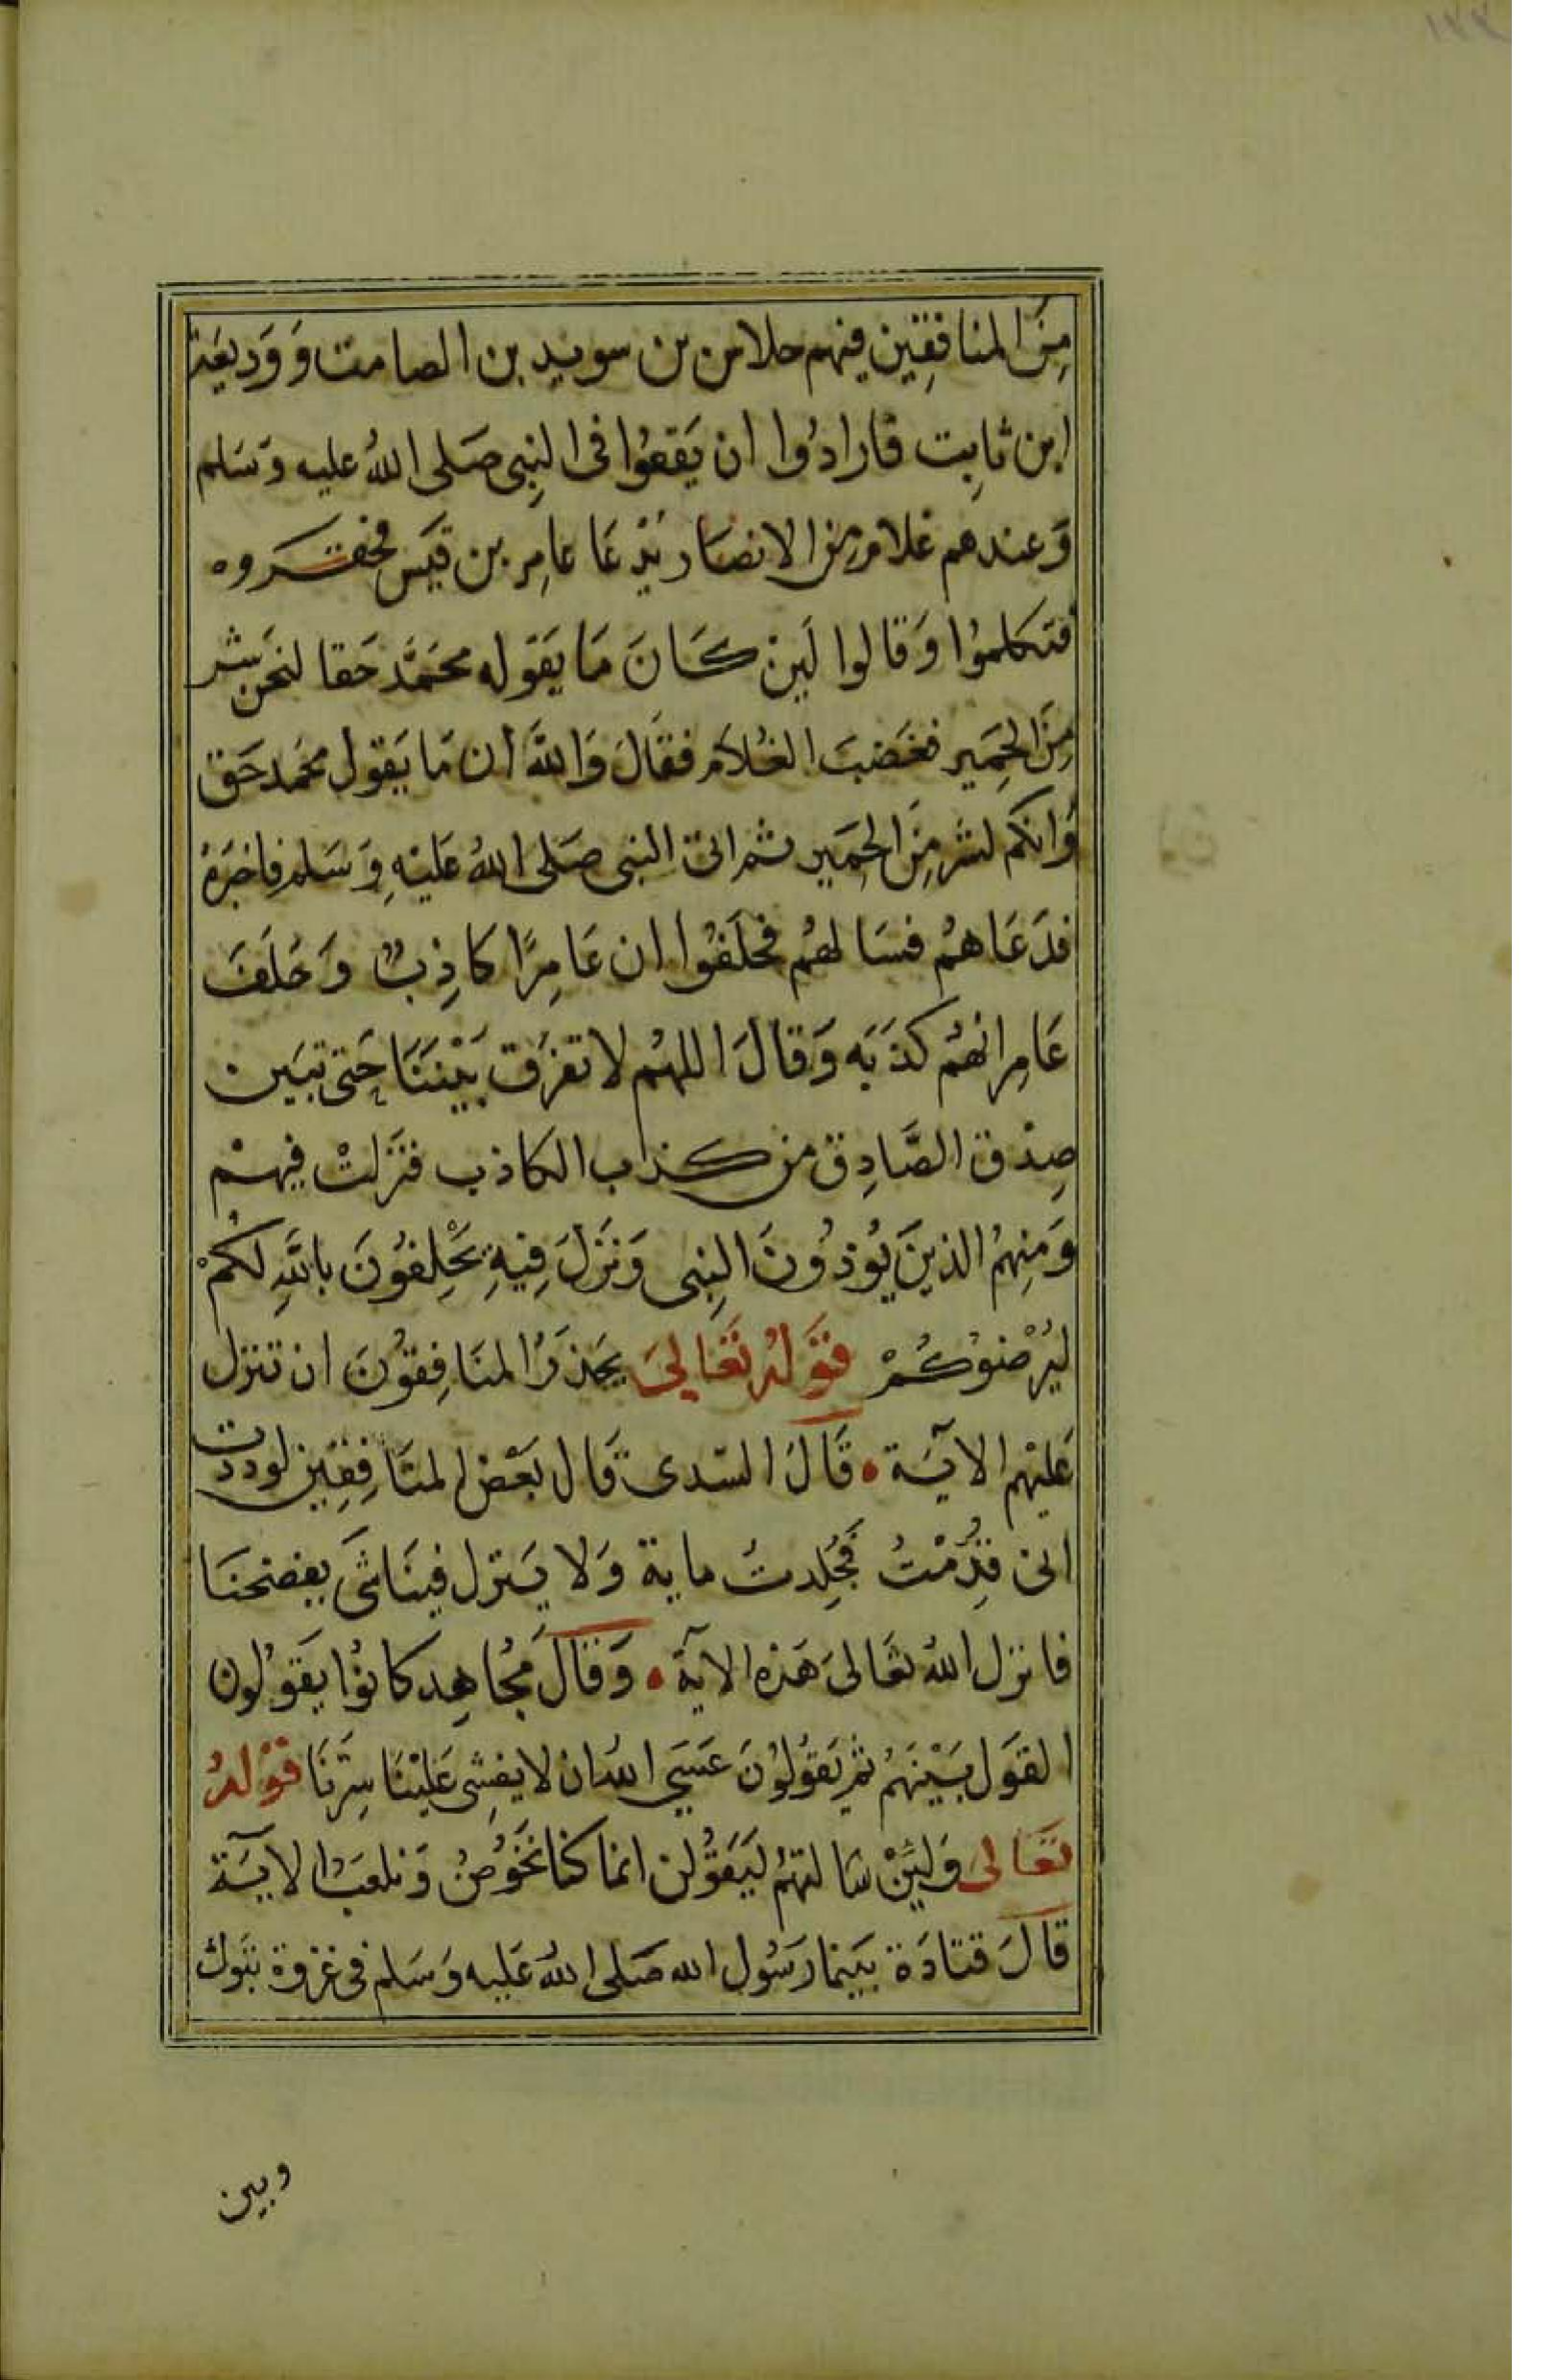 ١٧٢
مِنَ المنافِقين فيهم حلاس بن سويد بن الصامت وَوَديعَة
ابن ثابِت فارادُوا ان يَقعُوا فى النبِى صَلى اللهُ عليه وَسَلم
وَعندهم غلام من الانصَار يُدعَا عامِر بن قيَس فحقروه
فتكلموُا وَقالوا لَين كَانَ مَا يَقوله محَمَّد حَقا لنحن شر
مِنَ الحِمَير فغَضبَ الغُلاَم فقالَ وَاللهِ ان مَا يَقول محَمد حَق
وَانكم لشر مِنَ الحِمَير ثم اتى النبى صَلى اللهُ عَليْهِ وَسَلم فاخبَرهُ
فدَعَاهمُ فسَالهُم فحلَفوُا ان عَامِرًا كاذِبٌ وَحَلَفَ
عَامِر انهُم كذَبَه وَقالَ اللهُم لا تفرَق بَيْننَا حَتى تبَين
صِدْق الصَّادِق من كذب الكاذب فنزلتْ فيهمْ
وَمنِهمُ الذينَ يُوذُونَ النبِى وَنزَلَ فِيهِ يَحْلِفوُنَ باللهِ لكُمْ
ليُرْضوُكُمْ قوَلهُ تعَالىَ يحَذرُ المنَافِقوُنَ ان تنزل
عَليْهم الايَة • قَالَ السّدى قال بَعْض المنَافِقِين لوددت
انى قدِّمْتُ فجُلِدتُ ماية وَلا يَنزل فينَا شَى يفضحنَا
فانزل اللهُ تعَالىَ هَذه الاية • وَقالَ مُجَاهِد كانوُا يقوَلون
القوَل بَيْنهَمُ ثم يَقوُلوُنَ عَسَي اللهُ ان لا يفشِى عَليْنَا سِرّنَا قوْلهُ
تعَالىَ وَلَئِنْ سَالتهمُ ليَقَوُلن انما كنا نخوُضُ وَنلعَبُ الايَة
قالَ قتادَة بَينما رَسُول الله صَلى اللهُ عَليه وَسَلم فى غزوة تبَوك
وبين